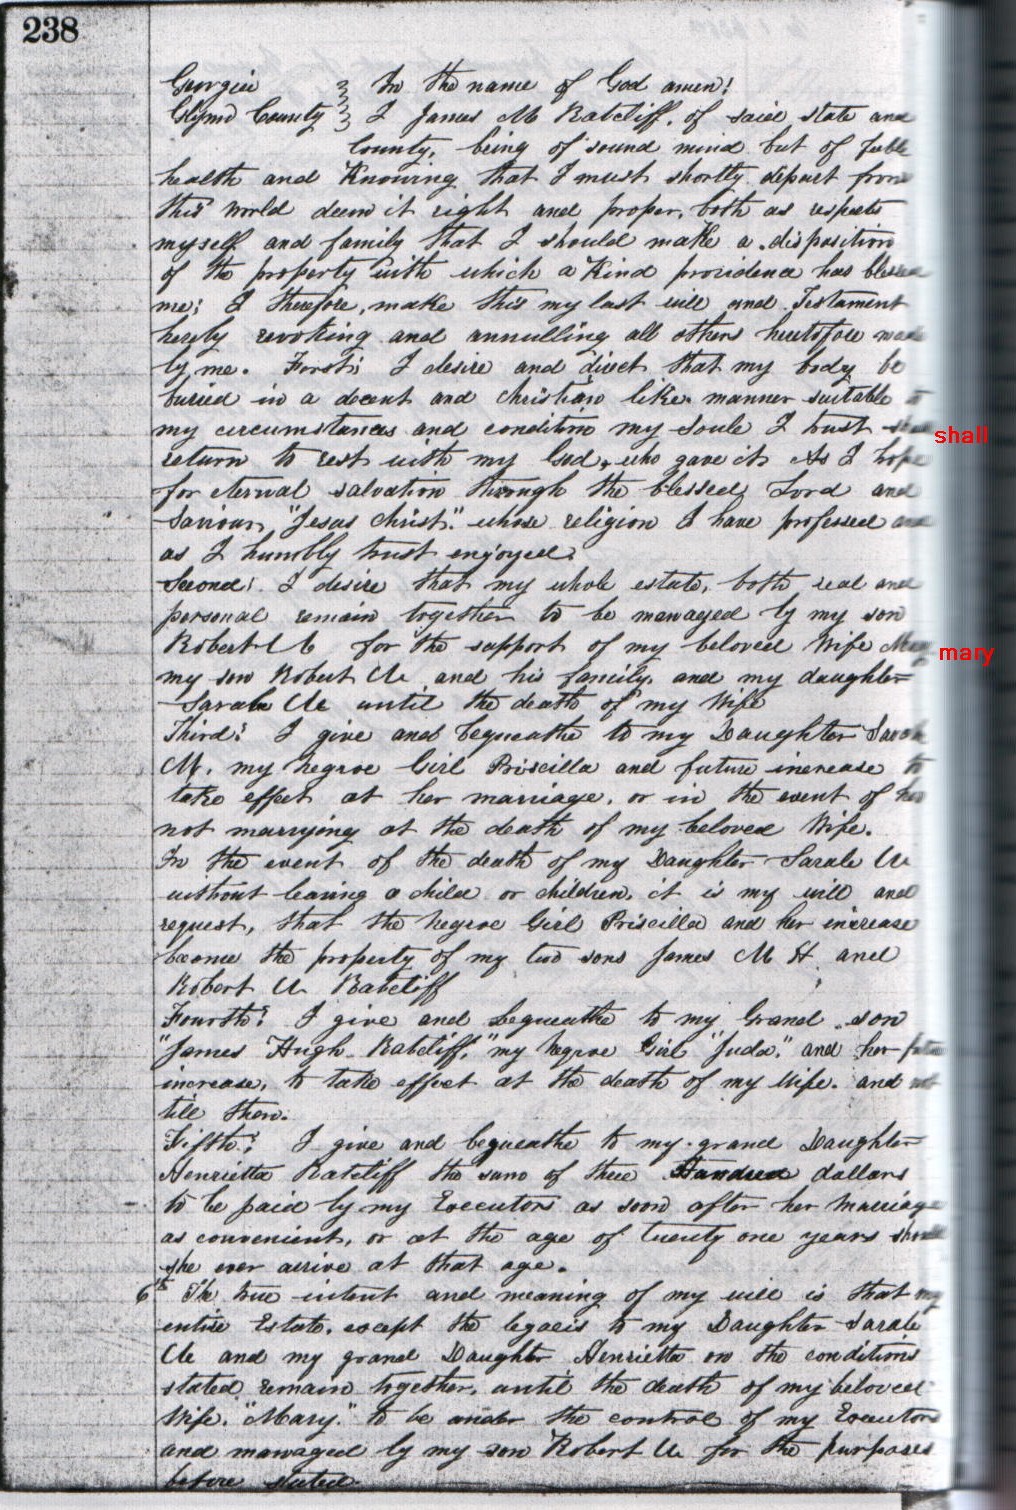 238
Georgia } In the name of God amen!
Glynn County } I James M Ratcliff, of said state and
County, being of sound mind but of feble
health and Knowing that I must shortly depart from
this world deem it right and proper, both as respects
myself and family that I should make a disposition
of the property with which a Kind providence has blessed
me; I therefore, make this my last will and Testament
hereby revoking and annulling all others heretofore made
by me. First; I desire and direct that my body be
buried in a decent and christian like manner suitable to
my circumstances and condition my Soule I trust shall shall
return to rest with my God, who gave it. As I hope
for eternal salvation through the blessed Lord and
Saviour, "Jesus Christ." whose religion I have professed and
as I humbly trust enjoyed.
Second; I desire that my whole estate, both real and
personal remain together to be managed by my son
Robert for the support of my beloved Wife Mary mary
my son Robert and his family, and my daughter
Sarah until the death of my Wife
Third; I give and bequeathe to my Daughter Sarah
M. my negroe Girl Priscilla and future increase to
take effect at her marriage, or in the event of her
not marrying at the death of my beloved Wife.
In the event of the death of my Daughter Sarah
without leaving a child or children, it is my will and
request, that the negroe Girl Priscilla and her increase
become the property of my two sons James M H and
Robert Ratcliff
Fourth; I give and bequeathe to my Grand son
"James Hugh Ratcliff," my negroe Girl "Juda," and her future
increase, to take effect at the death of my Wife. and not
till then.
Fifth; I give and bequeathe to my grand Daughter
Henrietta Ratcliff the sum of three Hundred dollars
to be paid by my Executors as soon after her marriage
as convenient, or at the age of twenty one years should
she ever arrive at that age.
6th The true intent and meaning of my will is that my
entire Estate, except the legacis to my Daughter Sarah
and my grand Daughter Henrietta on the conditions
stated remain together, until the death of my beloved
Wife. "Mary." to be under the control of my Executors
and managed by my son Robert for the purposes
before stated